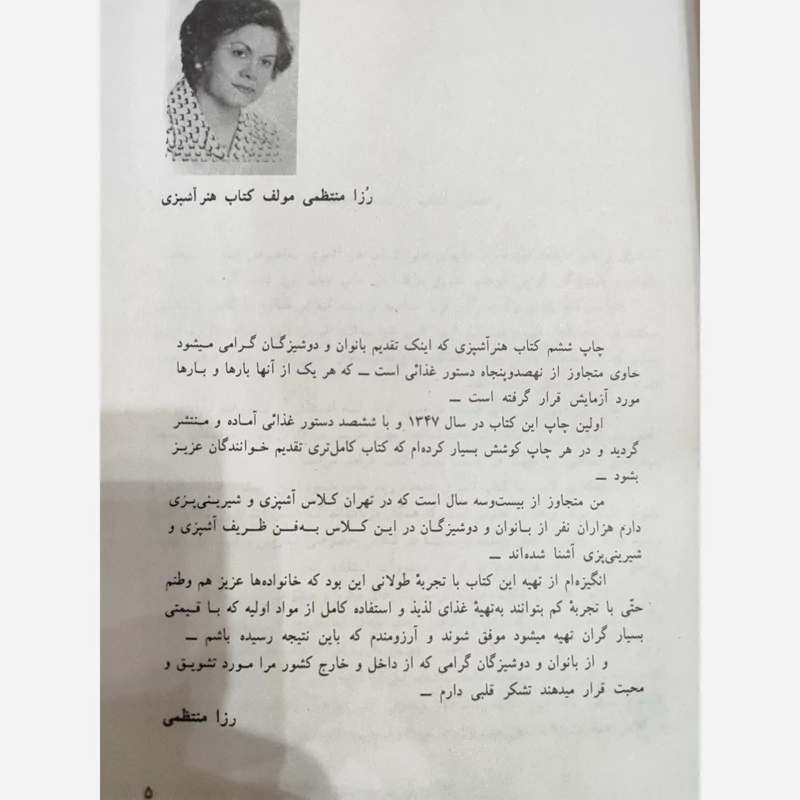 رُزا منتظمی مولف کتاب هنر آشپزی
چاپ ششم کتاب هنرآشپزی که اینک تقدیم بانوان و دوشیزگان گرامی میشود
حاوی متجاوز از نهصدوپنجاه دستور غذائی است ــ که هر یک از آنها بارها و بارها
مورد آزمایش قرار گرفته است ــ
اولین چاپ این کتاب در سال ۱۳۴۷ و با ششصد دستور غذائی آماده و منتشر
گردید و در هر چاپ کوشش بسیار کرده‌ام که کتاب کامل‌تری تقدیم خوانندگان عزیز
بشود ــ
من متجاوز از بیست‌وسه سال است که در تهران کلاس آشپزی و شیرینی‌پزی
دارم هزاران نفر از بانوان و دوشیزگان در این کلاس به‌فن ظریف آشپزی و
شیرینی‌پزی آشنا شده‌اند ــ
انگیزه‌ام از تهیه این کتاب با تجربهٔ طولانی این بود که خانواده‌ها عزیز هم وطنم
حتّی با تجربهٔ کم بتوانند به‌تهیهٔ غذای لذیذ و استفاده کامل از مواد اولیه که با قیمتی
بسیار گران تهیه میشود موفق شوند و آرزومندم که باین نتیجه رسیده باشم ــ
و از بانوان و دوشیزگان گرامی که از داخل و خارج کشور مرا مورد تشویق و
محبت قرار میدهند تشکر قلبی دارم ــ
رزا منتظمی
۵